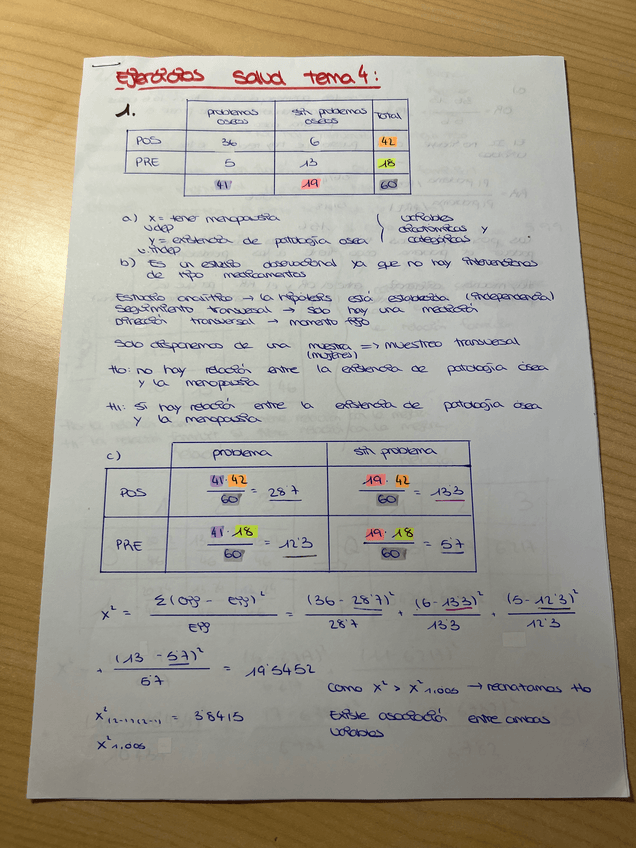 Ejercicios salud tema 4:
1.
problemas óseos sin problemas óseos Total
POS 36 6 42
PRE 5 13 18
41 19 60
a) x = tener menopausia
v.dep
y = existencia de patología ósea
v.indep
variables dicotómicas y categóricas
b) Es un estudio observacional ya que no hay intervenciones
de tipo medicamentos
Estudio analítico → la hipótesis está establecida (independencia)
Seguimiento transversal → solo hay una medición
Dirección transversal → momento fijo
Solo disponemos de una muestra => muestreo transversal
(mujeres)
H0: no hay relación entre la existencia de patología ósea
y la menopausia
H1: Si hay relación entre la existencia de patología ósea
y la menopausia
c)
problema sin problema
POS 41·42/60 = 28'7 19·42/60 = 13'3
PRE 41·18/60 = 12'3 19·18/60 = 5'7
x² = Σ(Oij - Eij)²/Eij = (36-28'7)²/28'7 + (6-13'3)²/13'3 + (5-12'3)²/12'3
+ (13-5'7)²/5'7 = 19'5452
como x² > x²1,0'05 → rechazamos H0
x²(2-1)(2-1) = 3'8415
Existe asociación entre ambas
variables
x²1,0'05